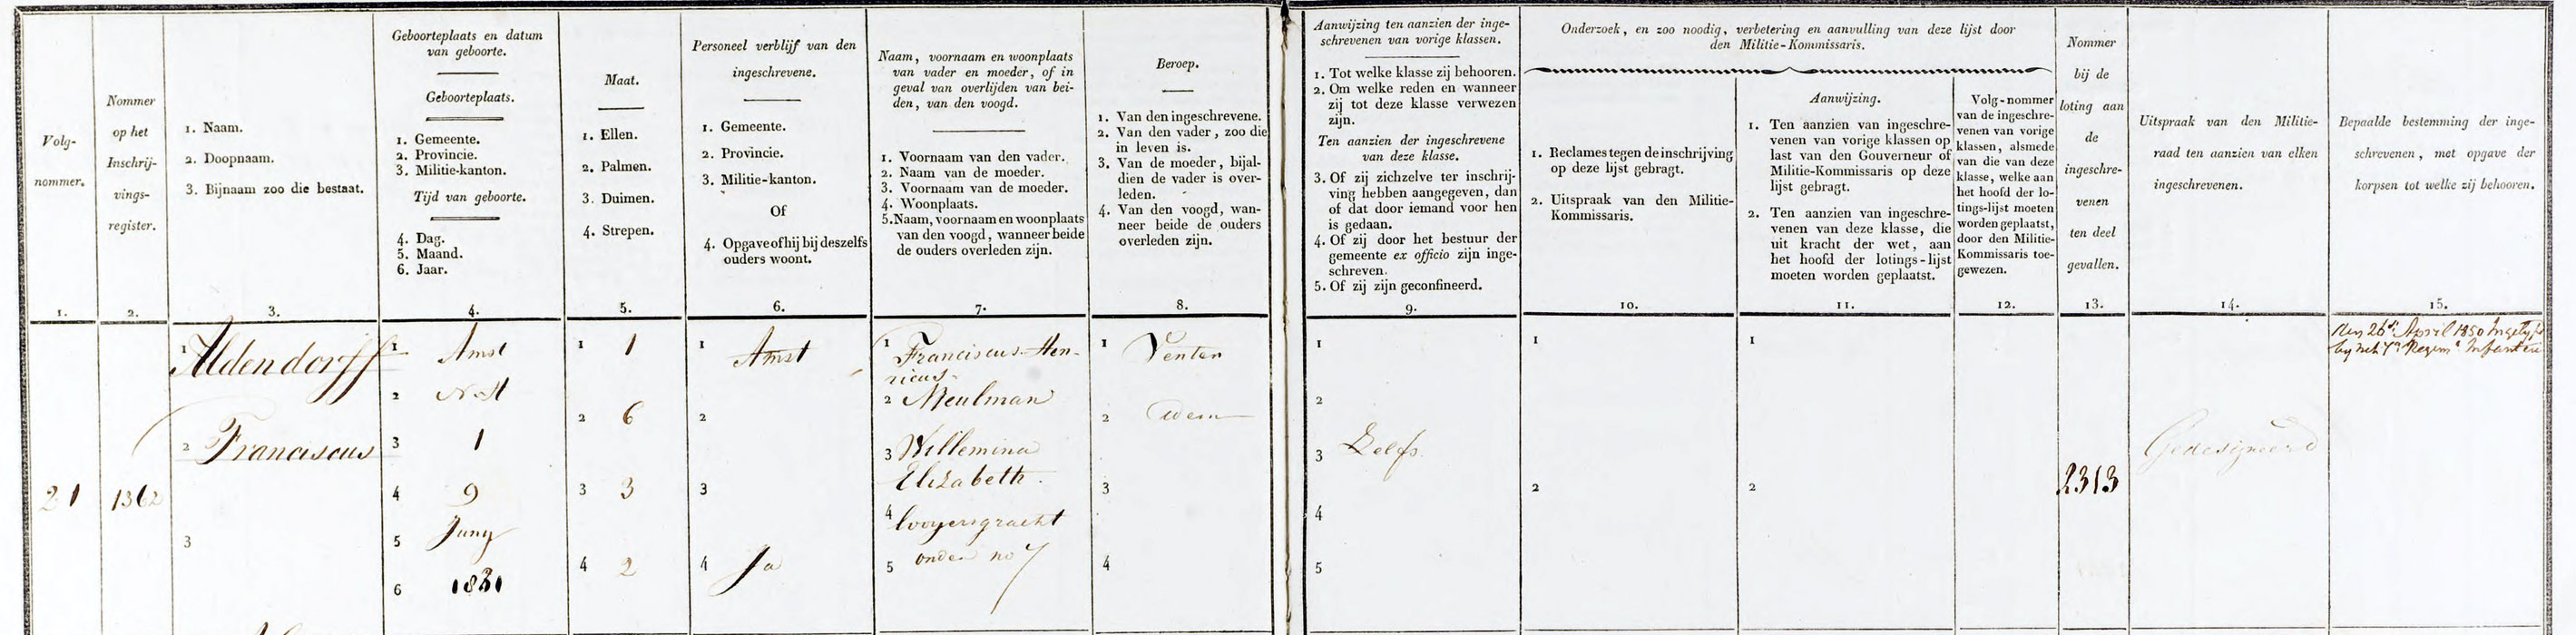 Volg-
nommer.
1.
Nommer
op het
Inschrij-
vings-
register.
2.
1. Naam.
2. Doopnaam.
3. Bijnaam zoo die bestaat.
3.
Geboorteplaats en datum
van geboorte.
Geboorteplaats.
1. Gemeente.
2. Provincie.
3. Militie-kanton.
Tijd van geboorte.
4. Dag.
5. Maand.
6. Jaar.
4.
Maat.
1. Ellen.
2. Palmen.
3. Duimen.
4. Strepen.
5.
Personeel verblijf van den
ingeschrevene.
1. Gemeente.
2. Provincie.
3. Militie-kanton.
Of
4. Opgave of hij bij deszelfs
ouders woont.
6.
Naam, voornaam en woonplaats
van vader en moeder, of in
geval van overlijden van bei-
den, van den voogd.
1. Voornaam van den vader.
2. Naam van de moeder.
3. Voornaam van de moeder.
4. Woonplaats.
5. Naam, voornaam en woonplaats
van den voogd, wanneer beide
de ouders overleden zijn.
7.
Beroep.
1. Van den ingeschrevene.
2. Van den vader, zoo die
in leven is.
3. Van de moeder, bijal-
dien de vader is over-
leden.
4. Van den voogd, wan-
neer beide de ouders
overleden zijn.
8.
Aanwijzing ten aanzien der inge-
schrevenen van vorige klassen.
1. Tot welke klasse zij behooren.
2. Om welke reden en wanneer
zij tot deze klasse verwezen
zijn.
Ten aanzien der ingeschrevene
van deze klasse.
3. Of zij zichzelve ter inschrij-
ving hebben aangegeven, dan
of dat door iemand voor hen
is gedaan.
4. Of zij door het bestuur der
gemeente ex officio zijn inge-
schreven.
5. Of zij zijn geconfineerd.
9.
Onderzoek, en zoo noodig, verbetering en aanvulling van deze lijst door
den Militie-Kommissaris.
1. Reclames tegen de inschrijving
op deze lijst gebragt.
2. Uitspraak van den Militie-
Kommissaris.
10.
Aanwijzing.
1. Ten aanzien van ingeschre-
venen van vorige klassen op
last van den Gouverneur of
Militie-Kommissaris op deze
lijst gebragt.
2. Ten aanzien van ingeschre-
venen van deze klasse, die
uit kracht der wet, aan
het hoofd der lotings-lijst
moeten worden geplaatst.
11.
Volg-nommer
van de ingeschre-
venen van vorige
klassen, alsmede
van die van deze
klasse, welke aan
het hoofd der lo-
tings-lijst moeten
worden geplaatst,
door den Militie-
Kommissaris toe-
gewezen.
12.
Nommer
bij de
loting aan
de
ingeschre-
venen
ten deel
gevallen.
13.
Uitspraak van den Militie-
raad ten aanzien van elken
ingeschrevenen.
14.
Bepaalde bestemming der inge-
schrevenen, met opgave der
korpsen tot welke zij behooren.
15.
21
1362
1 Aldendorff
2 Franciscus
3
1 Amst
2 N-H
3 1
4 9
5 Juny
6 1831
1 1
2 6
3 3
4 2
1 Amst
2
3
4 Ja
1 Franciscus Hen-
ricus
2 Meulman
3 Willemina
Elizabeth
4 looyersgracht
5 onder no 7
1 Venter
2 idem
3
4
1
2
3 Zelfs
4
5
1
2
1
2
2313
Gedesigneerd
den 26 April 1850 Ingelyfd
by het 7e Regimt Infanterie